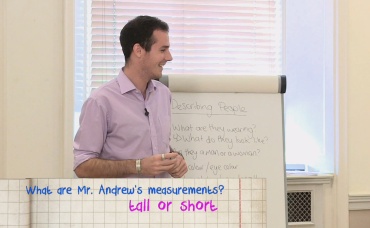 Describing People
What are they wearing?
What do they look like?
What are Mr. Andrew's measurements?
tall or short